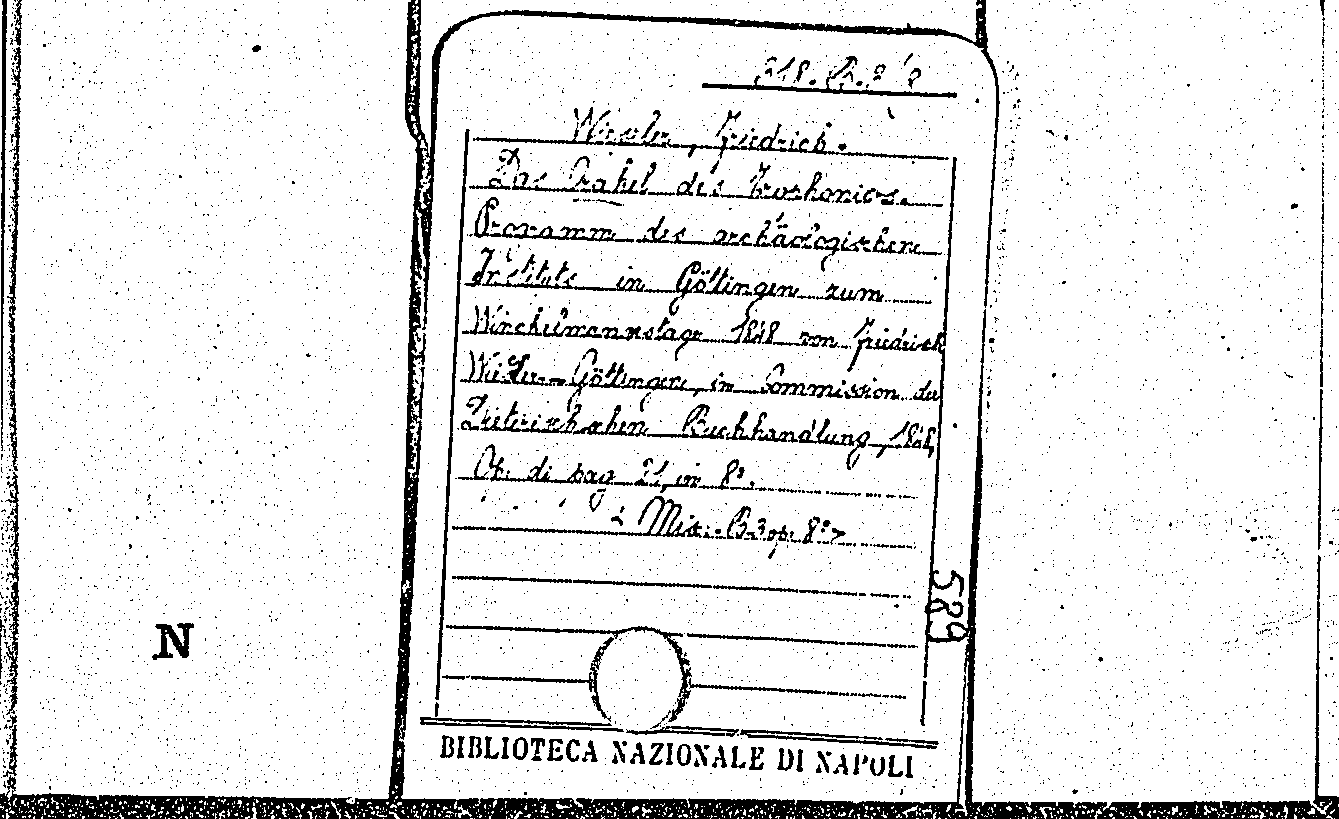 318. B. 2
Wieseler, Friedrich.
Das Orakel des Trophonios.
Programm des archäologischen
Instituts in Göttingen zum
Winckelmannstage 1848 von Friedrich
Wieseler Göttingen, in Commission der
Dieterichschen Buchhandlung, 1848,
Op. di pag 21, in 8º.
< Misc. B. 3 op. 8º >
589
N
BIBLIOTECA NAZIONALE DI NAPOLI